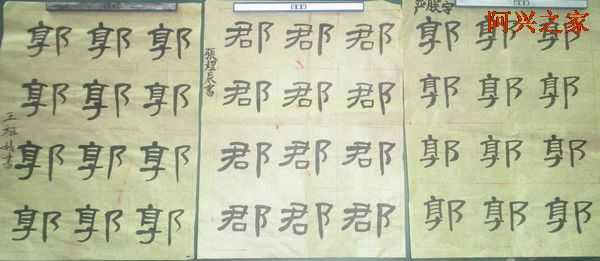 郭郭郭
郭郭郭
郭郭郭
郭郭郭
張煜辰書
郡郡郡
郡郡郡
郡郡郡
郡郡郡
阿兴之家
郭郭郭
郭郭郭
郭郭郭
郭郭郭